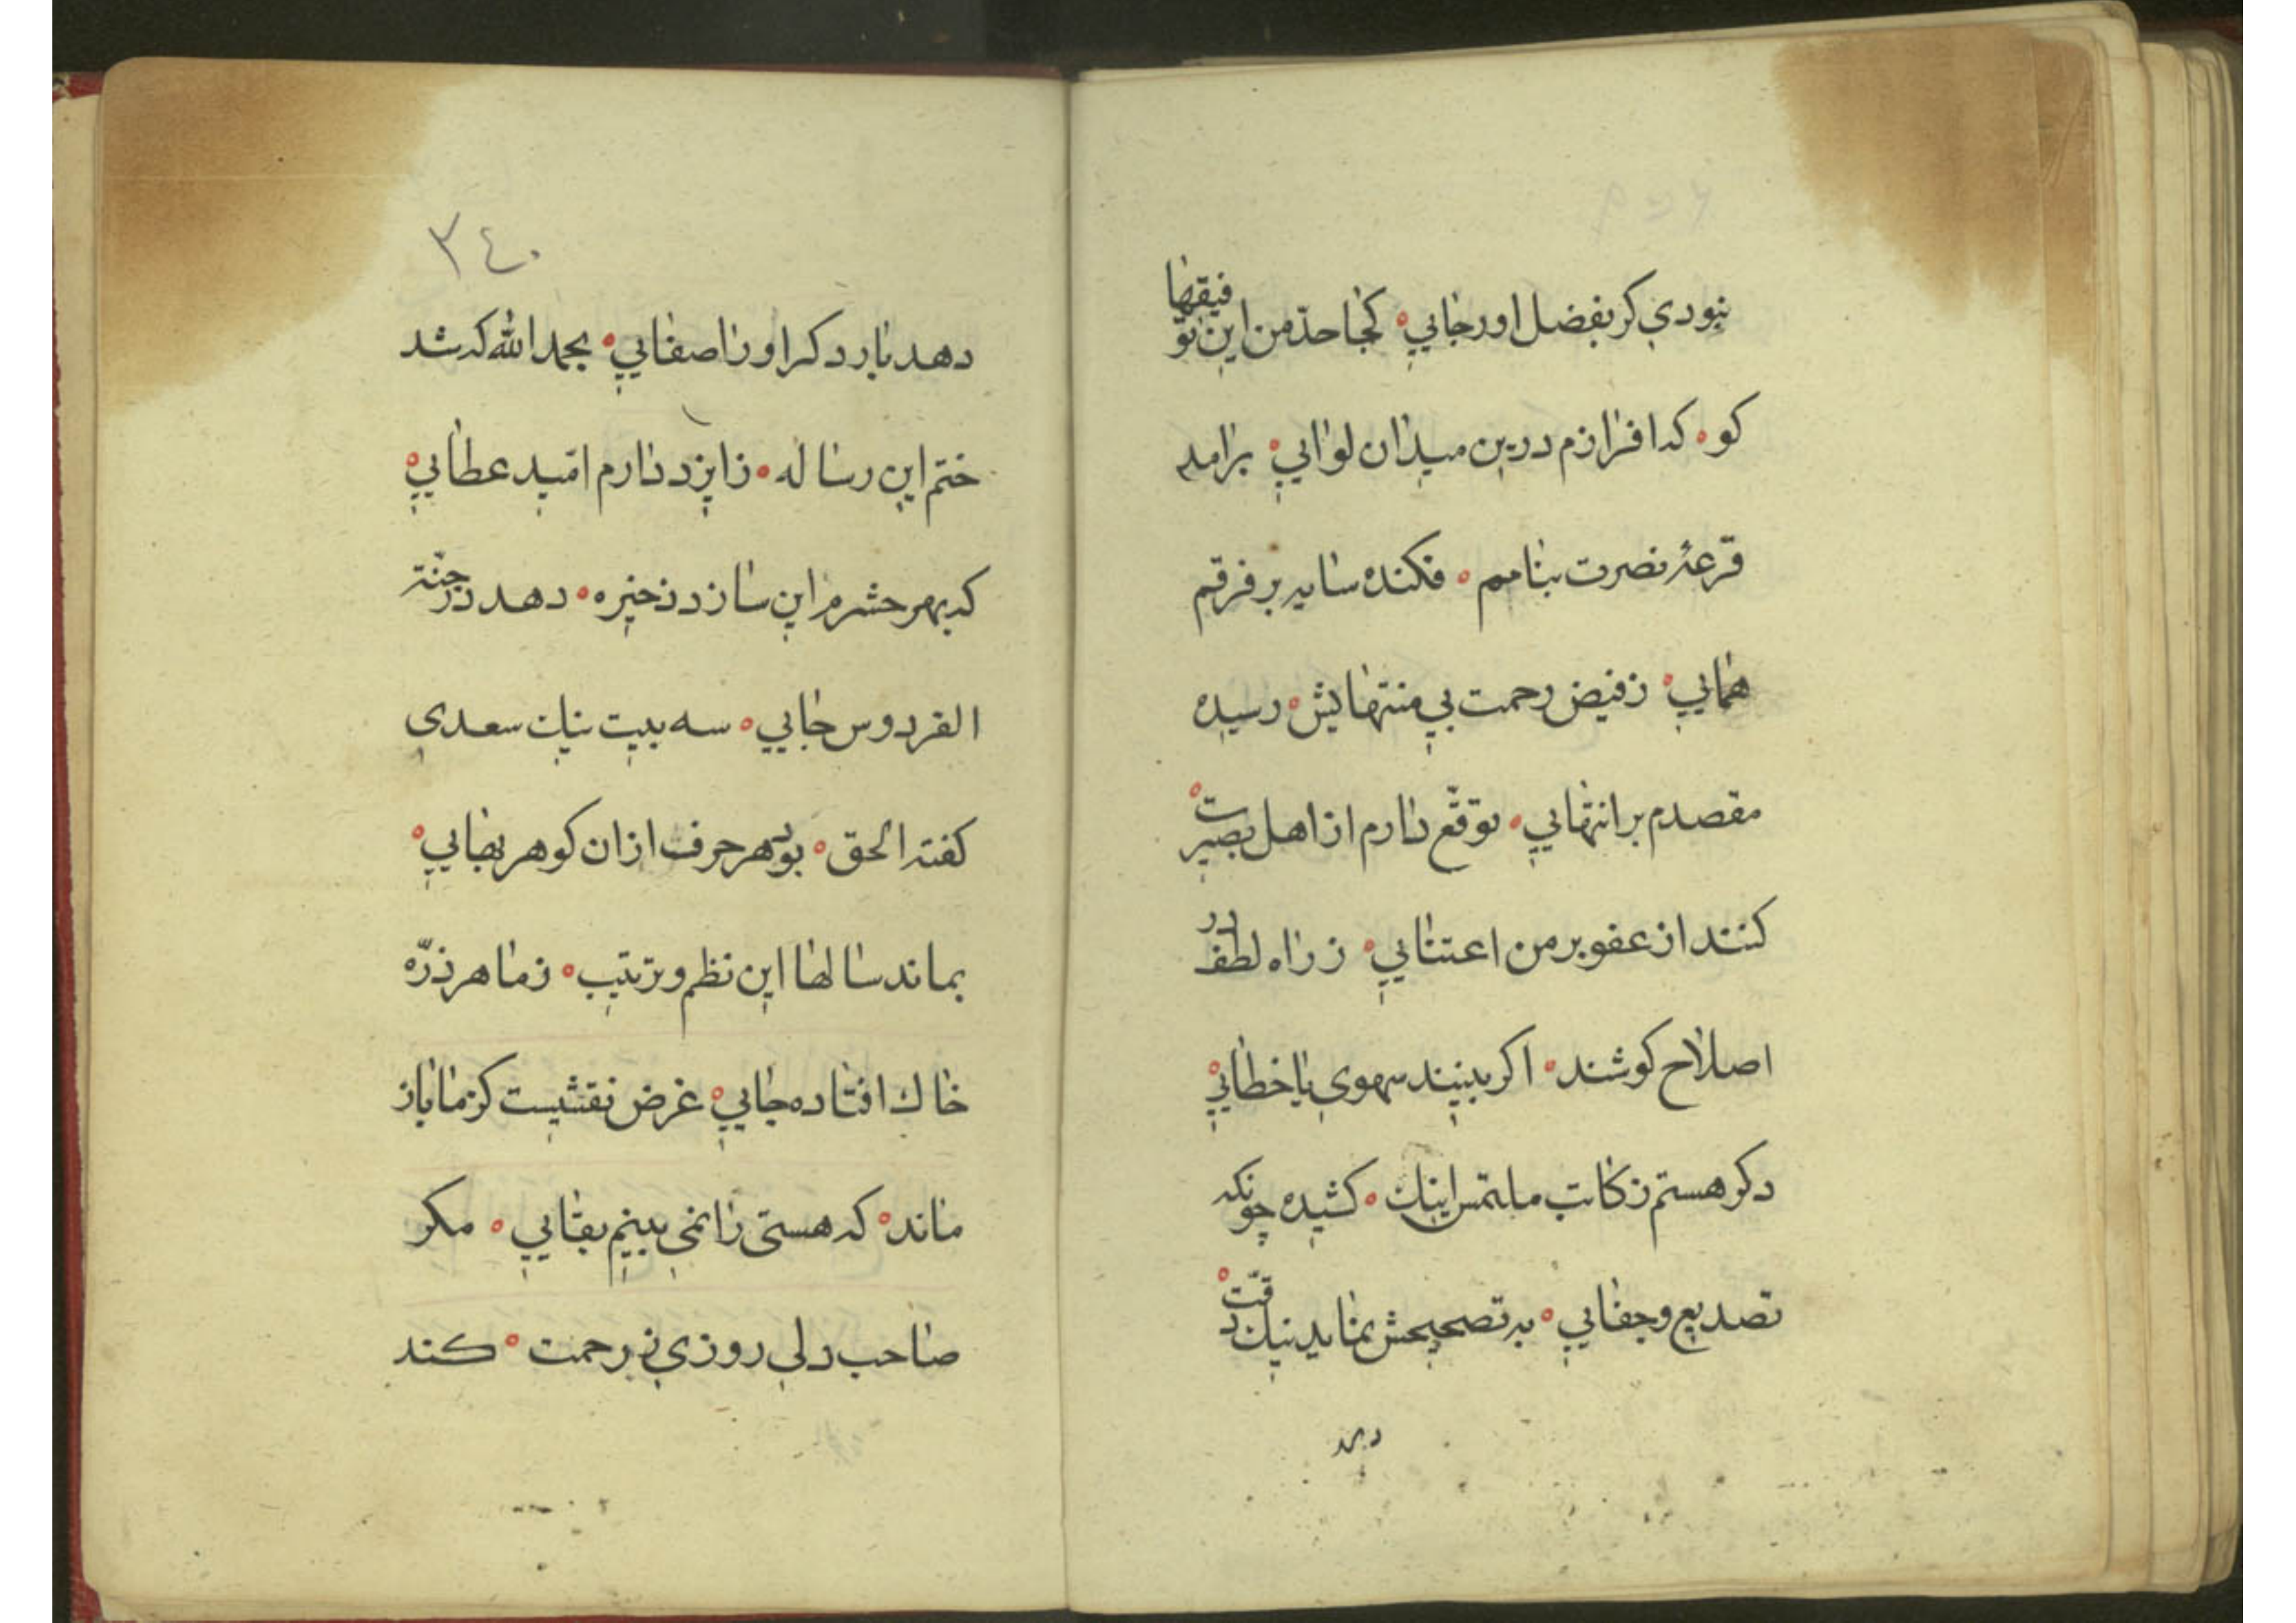 نبودي كر بفضل اورجايي ° كجا حدّ من اين توفيقها
كو ° كه افرازم درين ميدان لوايي ° برامد
قرعهٔ نصرت بنامم ° فكنده سايه بر فرقم
همايي ° ز فيض رحمت بي منتهايش ° رسيده
مقصدم بر انتهايي ° توقّع دارم از اهل بصيرت °
كنند از عفو بر من اعتنايي ° ز راه لطف در
اصلاح كوشند ° اكر بينند سهوي يا خطايي °
دكر هستم ز كاتب ملتمس اينك ° كشيده چونكه
تصديع و جفايي ° به تصحيحش نمايد نيك دقّت °
دهد
٣٤٠
دهد بار دكر او را صفايي ° بحمد الله كه شد
ختم اين رساله ° ز ايزد دارم امّيد عطايي °
كه بهر حشرم اين سازد ذخيره ° دهد در جنّة
الفردوس جايي ° سه بيت نيك سعدي
كفته الحق ° بود هر حرف ازان كوهر بهايي °
بماند سالها اين نظم و ترتيب ° ز ما هر ذرّه
خاك افتاده جايي ° غرض نقشيست كز ما باز
ماند ° كه هستي را نمي بينم بقايي ° مكر
صاحب دلي روزي ز رحمت ° كند